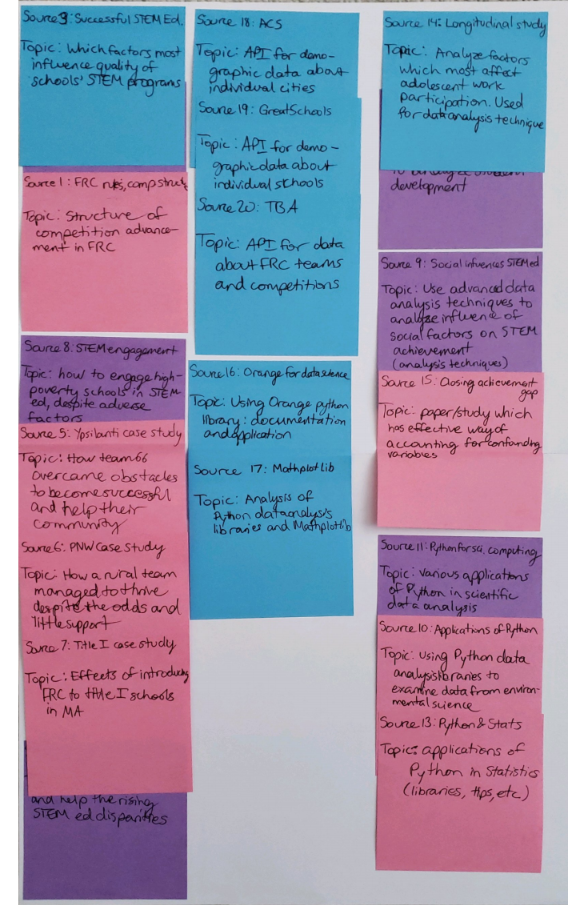 Source 3: Successful STEM Ed.
Topic: Which factors most
influence quality of
schools' STEM programs
Source 1: FRC rules, comp struct
Topic: Structure of
competition advance-
ment in FRC
Source 8: STEM engagement
Topic: how to engage high-
poverty schools in STEM
ed, despite adverse
factors
Source 5: Ypsilanti case study
Topic: How team 66
overcame obstacles
to become successful
and help their
community
Source 6: PNW Case Study
Topic: How a rural team
managed to thrive
despite the odds and
little support
Source 7: Title I case study
Topic: Effects of introducing
FRC to title I schools
in MA
and help the rising
STEM ed disparities
Source 18: ACS
Topic: API for demo-
graphic data about
individual cities
Source 19: GreatSchools
Topic: API for demo-
graphic data about
individual schools
Source 20: TBA
Topic: API for data
about FRC teams
and competitions
Source 16: Orange for data science
Topic: Using Orange python
library: documentation
and application
Source 17: Mathplotlib
Topic: Analysis of
Python data analysis
libraries and Mathplotlib
Source 14: Longitudinal study
Topic: Analyze factors
which most affect
adolescent work
participation. Used
for data analysis technique
development
Source 9: Social influences STEM ed
Topic: Use advanced data
analysis techniques to
analyze influence of
social factors on STEM
achievement
(analysis techniques)
Source 15: Closing achievement
gap
Topic: paper/study which
has effective way of
accounting for confounding
variables
Source 11: Python for sci. computing
Topic: various applications
of Python in scientific
data analysis
Source 10: Applications of Python
Topic: Using Python data
analysis libraries to
examine data from environ-
mental science
Source 13: Python & Stats
Topic: applications of
Python in Statistics
(libraries, tips, etc)